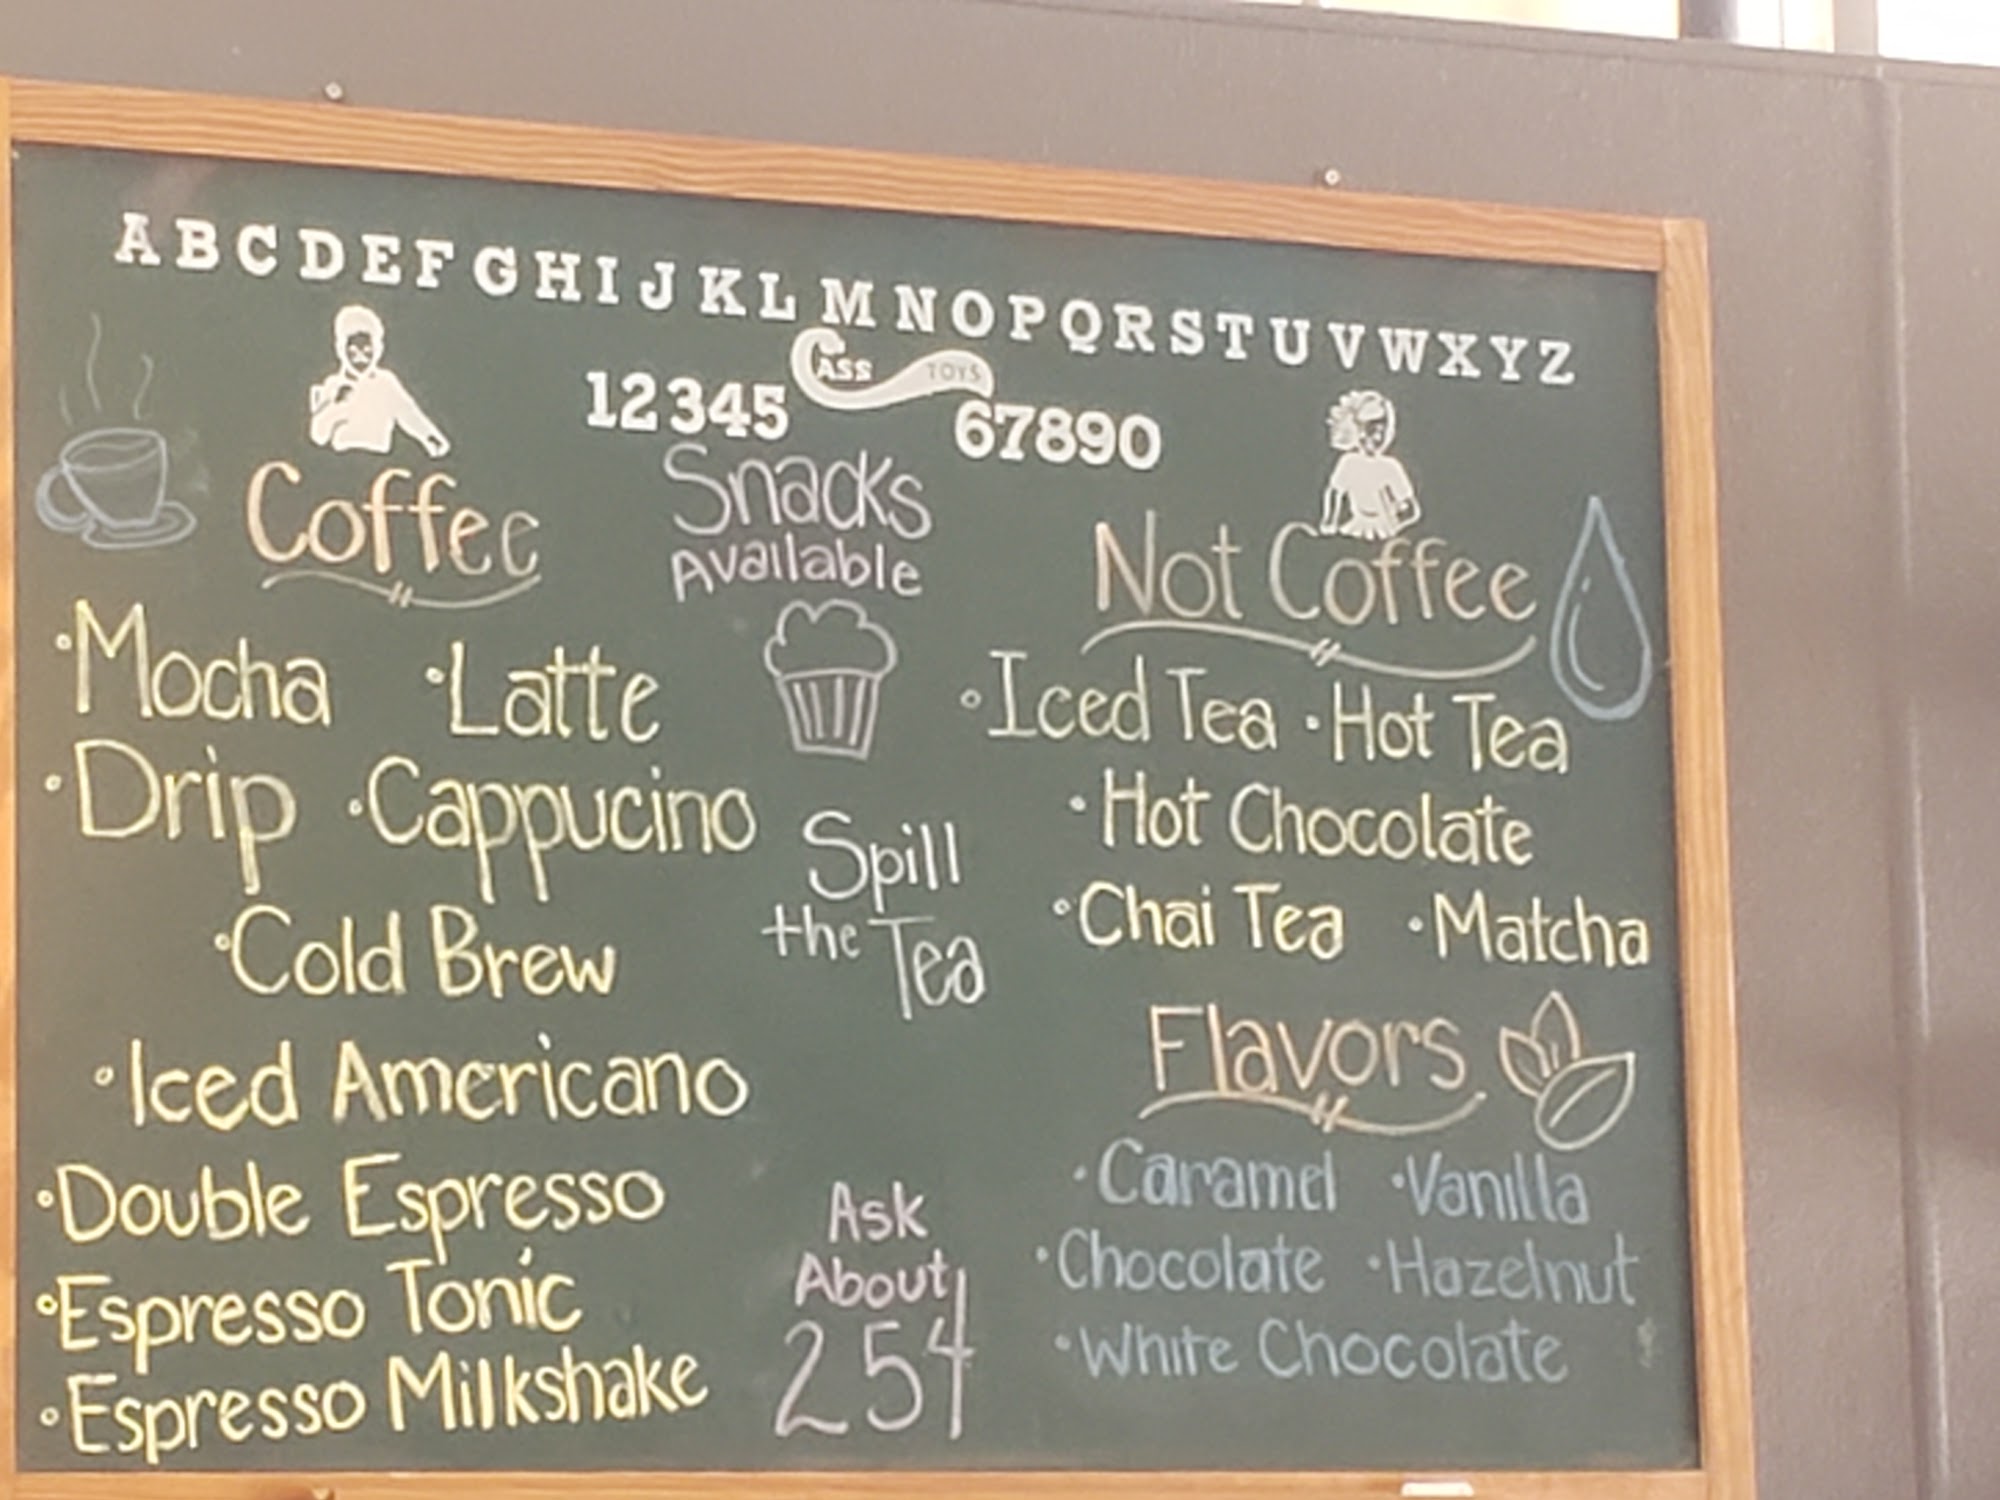 ABCDEFGHIJKLMNOPQRSTUVWXYZ
12345 CASS TOYS 67890
Coffee
• Mocha • Latte
• Drip • Cappucino
• Cold Brew
• Iced Americano
• Double Espresso
• Espresso Tonic
• Espresso Milkshake
Snacks
Available
Spill
the Tea
Ask
About
254
Not Coffee
• Iced Tea • Hot Tea
• Hot Chocolate
• Chai Tea • Matcha
Flavors
• Caramel • Vanilla
• Chocolate • Hazelnut
• White Chocolate